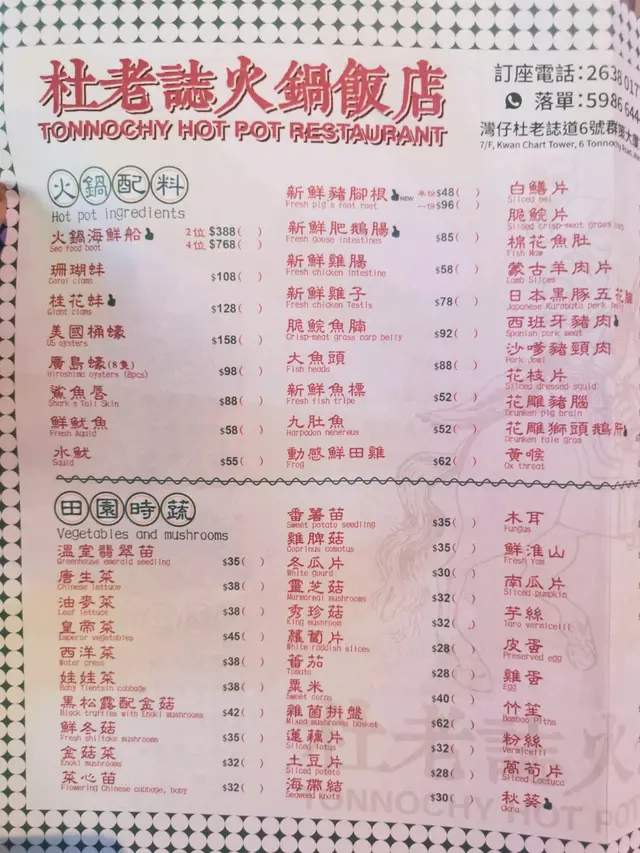 杜老誌火鍋飯店
TONNOCHY HOT POT RESTAURANT
訂座電話:2638 017
落單:5986 644
灣仔杜老誌道6號群
7/F, Kwan Chart Tower, 6 Tonnochy
火鍋配料
Hot pot ingredients
火鍋海鮮船 2位 $388( )
Sea food boat 4位 $768( )
珊瑚蚌 $108( )
Coral clams
桂花蚌 $128( )
Giant clams
美國桶蠔 $158( )
US oysters
廣島蠔(8隻) $98( )
Hiroshima oysters (8pcs)
鯊魚唇 $88( )
Shark's Tail Skin
鮮魷魚 $58( )
Fresh Squid
水魷 $55( )
Squid
新鮮豬腳根 NEW 半份$48( )
Fresh pig's foot root 一份$96( )
新鮮肥鵝腸 $85( )
Fresh goose intestines
新鮮雞腸 $58( )
Fresh chicken intestine
新鮮雞子 $78( )
Fresh chicken Testis
脆鯇魚腩 $92( )
Crisp-meat grass carp belly
大魚頭 $88( )
Fish heads
新鮮魚標 $52( )
Fresh fish tripe
九肚魚 $52( )
Harpadon nehereus
動感鮮田雞 $62( )
Frog
白鱔片
Sliced eel
脆鯇片
Sliced crisp-meat grass
棉花魚肚
Fish Maw
蒙古羊肉片
Lamb Slices
日本黑豚五花腩
Japanese Kurobuta pork belly
西班牙豬肉
Spanish pork meat
沙嗲豬頸肉
Pork Jowl
花枝片
Sliced dressed squid
花雕豬腦
Drunken pig brain
花雕獅頭鵝肝
Drunken foie gras
黃喉
Ox throat
田園時蔬
Vegetables and mushrooms
溫室翡翠苗 $35( )
Greenhouse emerald seedling
唐生菜 $38( )
Chinese lettuce
油麥菜 $38( )
Leaf lettuce
皇帝菜 $45( )
Emperor vegetables
西洋菜 $38( )
Water cress
娃娃菜 $38( )
Baby Tientsin cabbage
黑松露配金菇 $42( )
Black truffles with Enoki mushrooms
鮮冬菇 $35( )
Fresh shiitake mushrooms
金菇菜 $32( )
Enoki mushrooms
菜心苗 $32( )
Flowering Chinese cabbage, baby
番薯苗 $35( )
Sweet potato seedling
雞脾菇 $35( )
Coprinus comatus
冬瓜片 $30( )
White gourd
靈芝菇 $32( )
Marmoreal mushrooms
秀珍菇 $32( )
King mushroom
蘿蔔片 $28( )
White raddish slices
蕃茄 $28( )
Tomato
粟米 $40( )
Sweet corns
雜菌拼盤 $62( )
Mixed mushrooms basket
蓮藕片 $32( )
Sliced lotus
土豆片 $28( )
Sliced potato
海帶結 $30( )
Seaweed knots
木耳
Fungus
鮮淮山
Fresh Yam
南瓜片
Sliced pumpkin
芋絲
Taro vermicelli
皮蛋
Preserved egg
雞蛋
Egg
竹笙
Bamboo Piths
粉絲
Vermicelli
萵筍片
Sliced Lactuca
秋葵
Okra
杜老誌火
TONNOCHY HOT POT